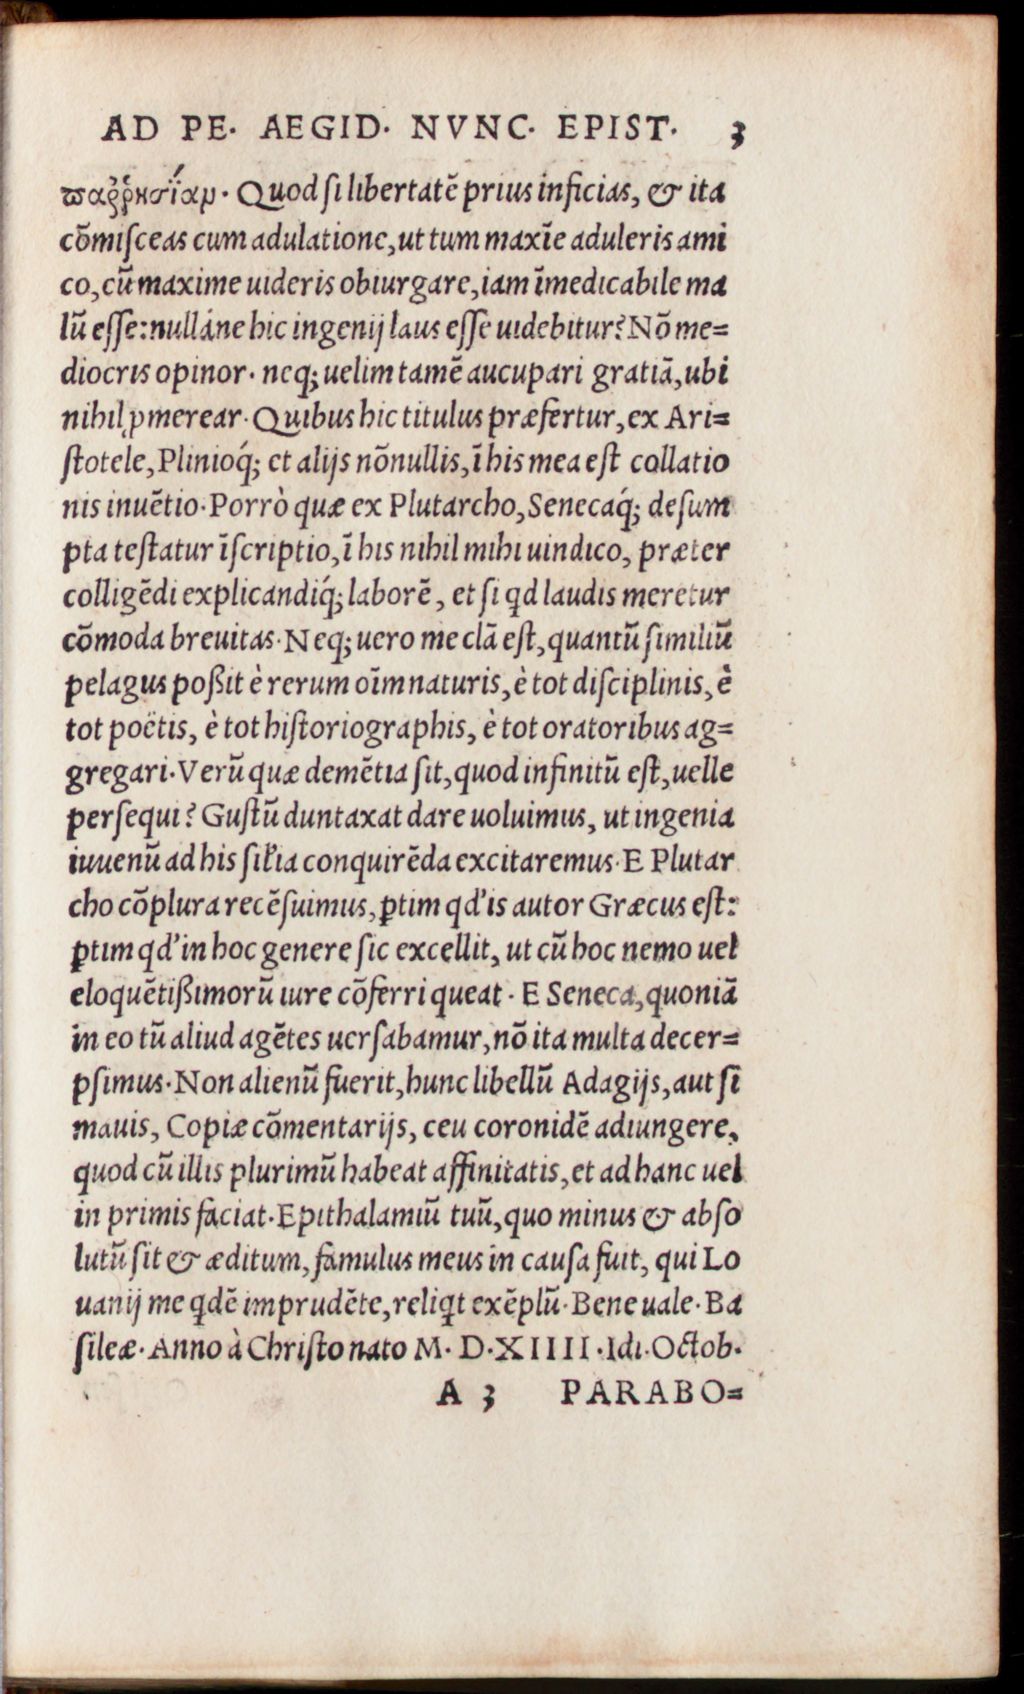 AD PE· AEGID· NVNC· EPIST· 3
παῤῥησίαν· Quod si libertatē prius inficias, & ita
cōmisceas cum adulatione, ut tum maxīe aduleris ami
co, cū maxime uideris obiurgare, iam īmedicabile ma
lū esse: nulláne hic ingenij laus esse uidebitur? Nō me=
diocris opinor· neq; uelim tamē aucupari gratiā, ubi
nihil ꝓmerear· Quibus hic titulus præfertur, ex Ari=
stotele, Plinioq́; et alijs nōnullis, ī his mea est collatio
nis inuētio· Porrò quæ ex Plutarcho, Senecaq́; desum
pta testatur īscriptio, ī his nihil mihi uindico, præter
colligēdi explicandiq́; laborē, et si qd laudis meretur
cōmoda breuitas· Neq; uero me clā est, quantū similiū
pelagus poßit è rerum oīm naturis, è tot disciplinis, è
tot poëtis, è tot historiographis, è tot oratoribus ag=
gregari· Verū quæ demētia sit, quod infinitū est, uelle
persequi? Gustū duntaxat dare uoluimus, ut ingenia
iuuenū ad his sił'ia conquirēda excitaremus· E Plutar
cho cōplura recēsuimus, ꝑtim qd' is autor Græcus est:
ꝑtim qd' in hoc genere sic excellit, ut cū hoc nemo uel
eloquētißimorū iure cōferri queat· E Seneca, quoniā
in eo tū aliud agētes uersabamur, nō ita multa decer=
psimus· Non alienū fuerit, hunc libellū Adagijs, aut si
mauis, Copiæ cōmentarijs, ceu coronidē adiungere,
quod cū illis plurimū habeat affinitatis, et ad hanc uel
in primis faciat· Epithalamiū tuū, quo minus & abso
lutū sit & æditum, famulus meus in causa fuit, qui Lo
uanij me qdē imprudēte, reliqt exēplū· Bene uale· Ba
sileæ· Anno à Christo nato M· D·XIIII·Idi·Octob·
A 3 PARABO=